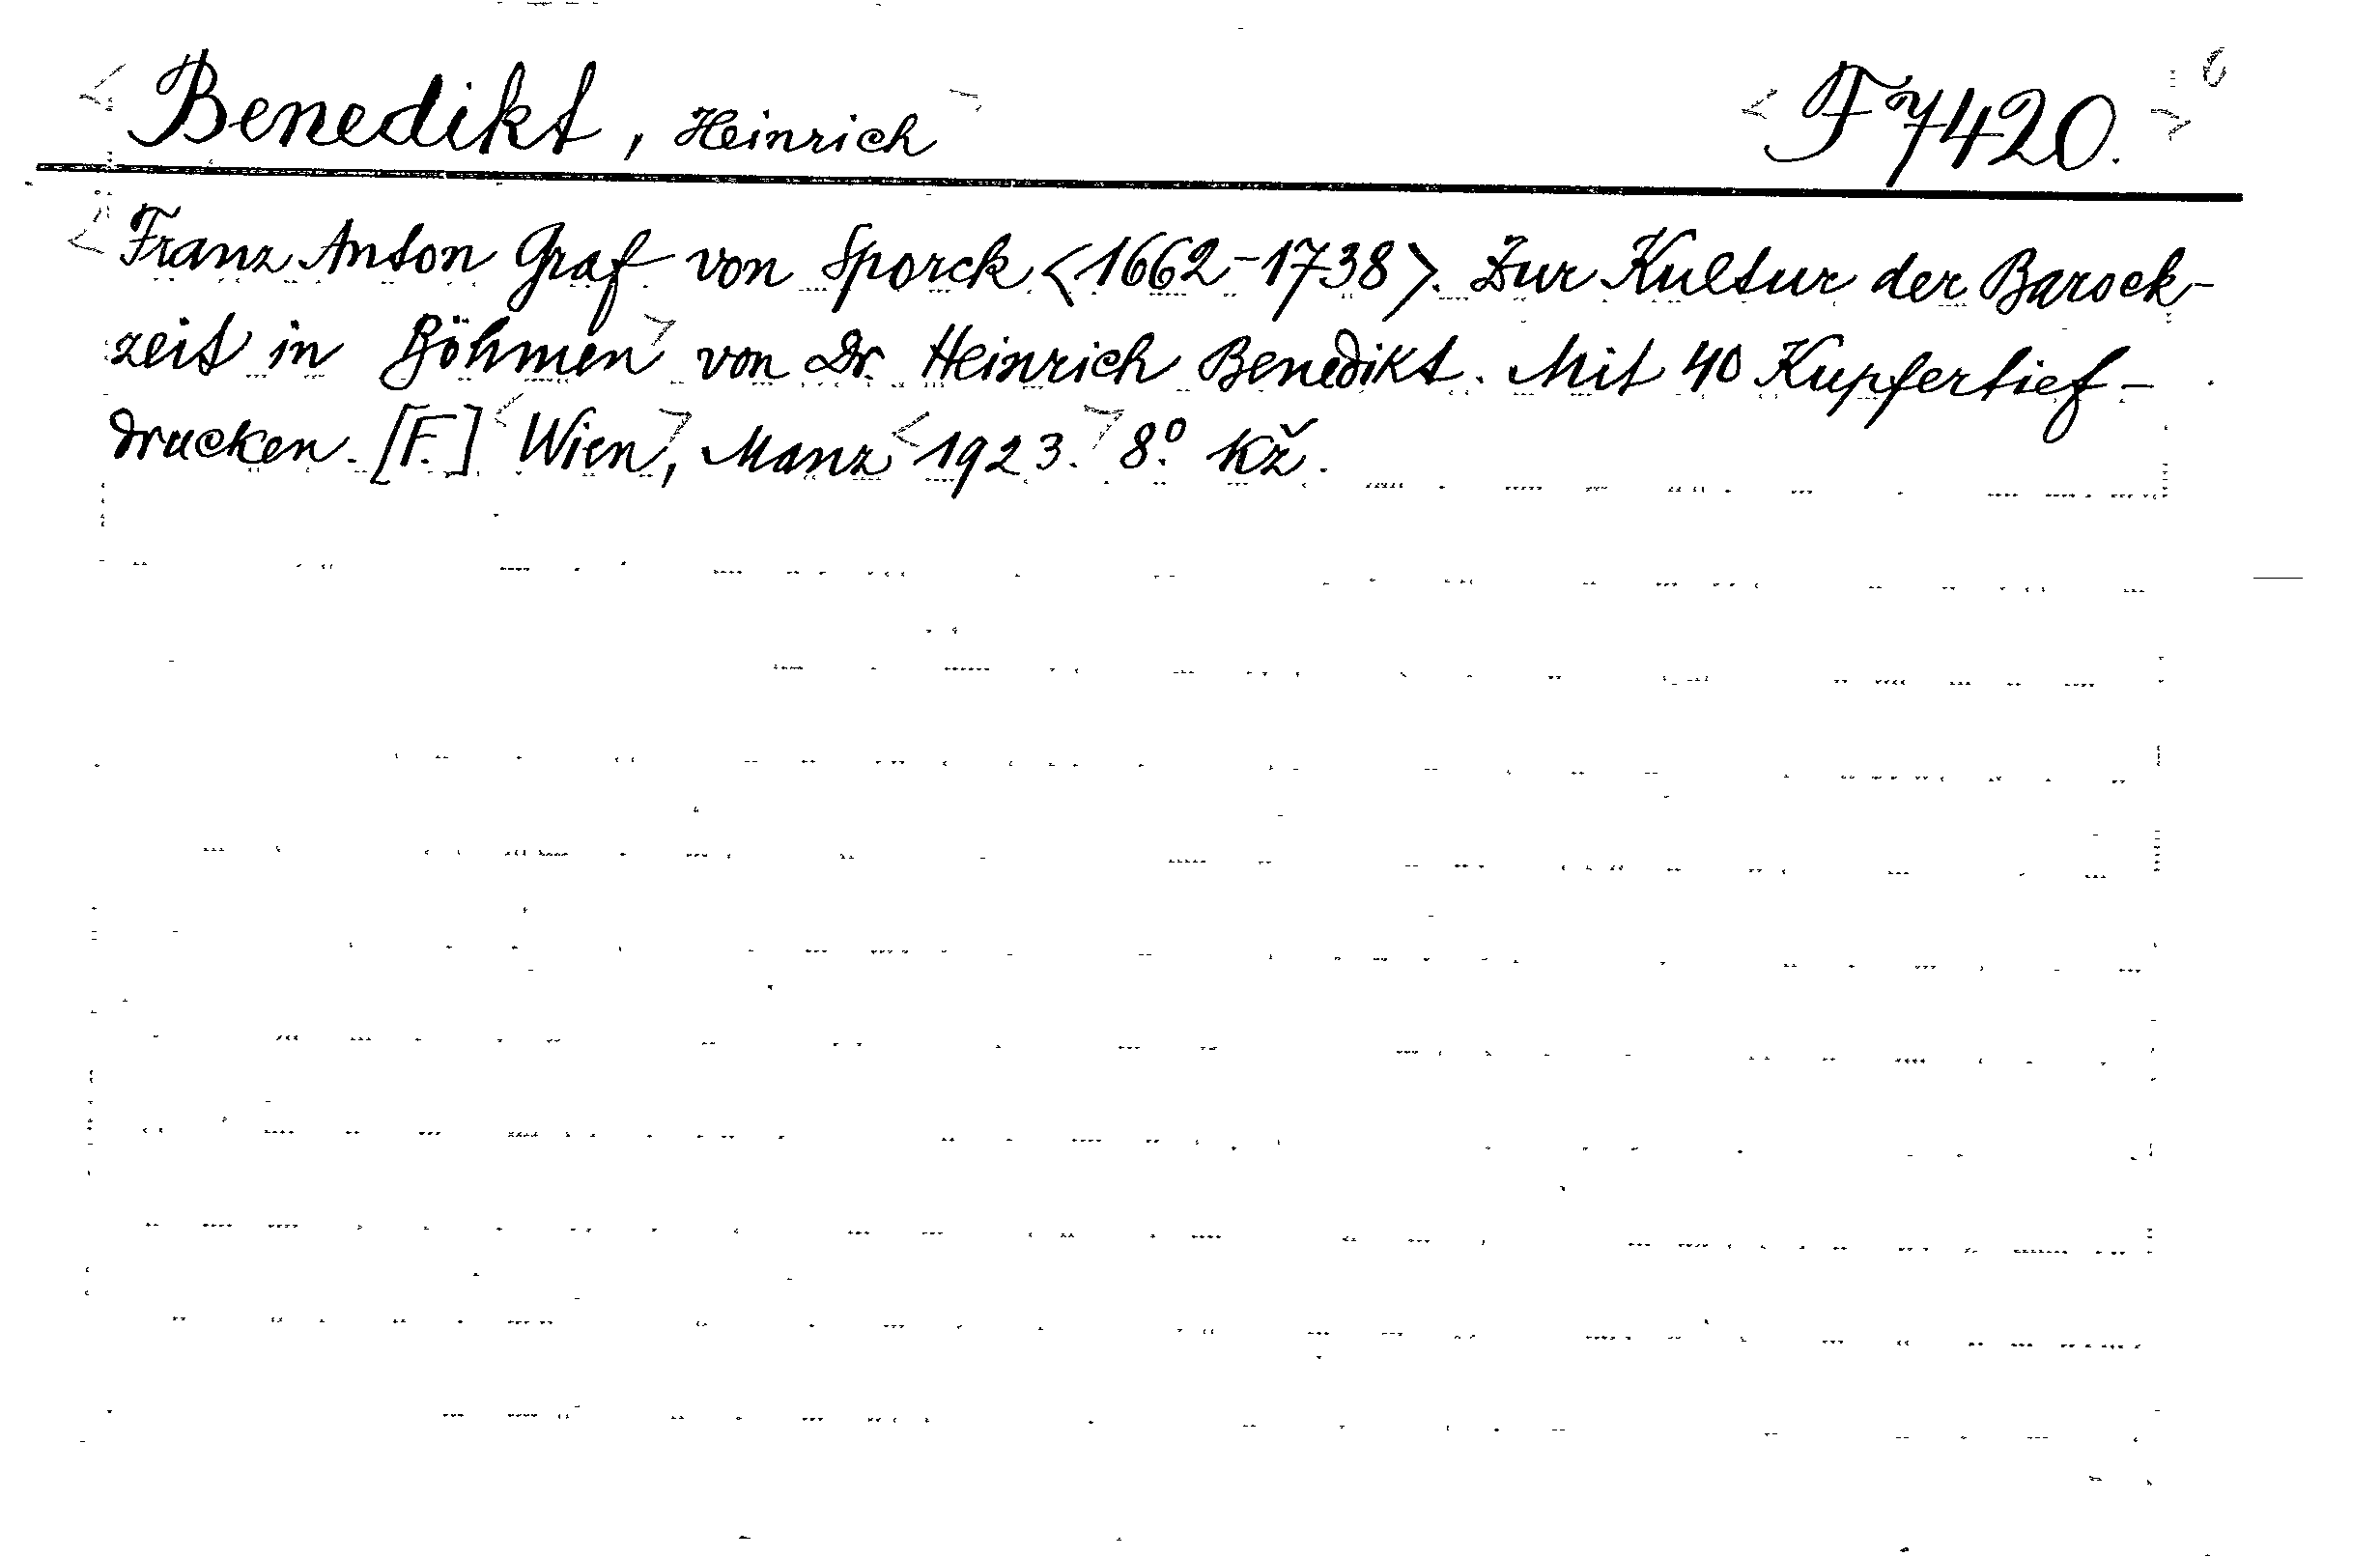 Benedikt, Heinrich F 7420.
Franz Anton Graf von Sporck <1662-1738>. Zur Kultur der Barock-
zeit in Böhmen von Dr. Heinrich Benedikt. Mit 40 Kupfertief-
drucken. [F.] Wien, Manz 1923. 8º. Kž.